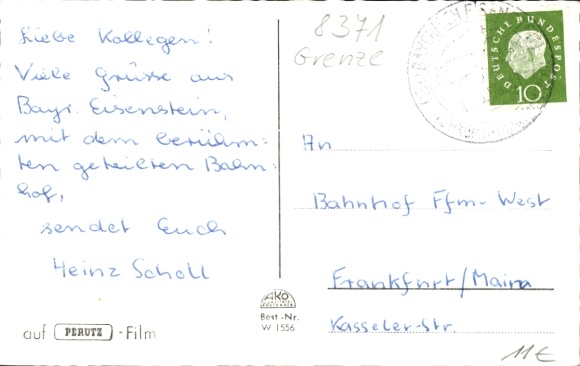 Liebe Kollegen!
Viele Grüsse aus
Bayr. Eisenstein,
mit dem berühm-
ten geteilten Bahn-
hof,
sendet Euch
Heinz Scholl
auf PERUTZ -Film
AKO
Best.-Nr.
W 1556
8371
Grenze
DEUTSCHE BUNDESPOST
10
An
Bahnhof Ffm-West
Frankfurt/Main
Kasseler-Str.
11€